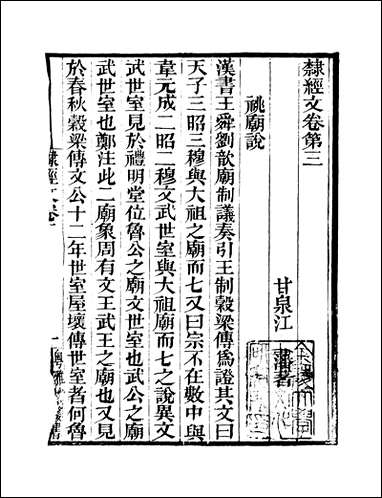 隸經文卷第三
甘泉江
藩著
祧廟說
漢書王舜劉歆廟制議奏引王制穀梁傳爲證其文曰
天子三昭三穆與大祖之廟而七又曰宗不在數中與
韋元成二昭二穆文武世室與大祖廟而七之說異文
武世室見於禮明堂位魯公之廟文世室也武公之廟
武世室也鄭注此二廟象周有文王武王之廟也又見
於春秋穀梁傳文公十二年世室屋壞傳世室者何魯
隸經文卷
一
粵雅